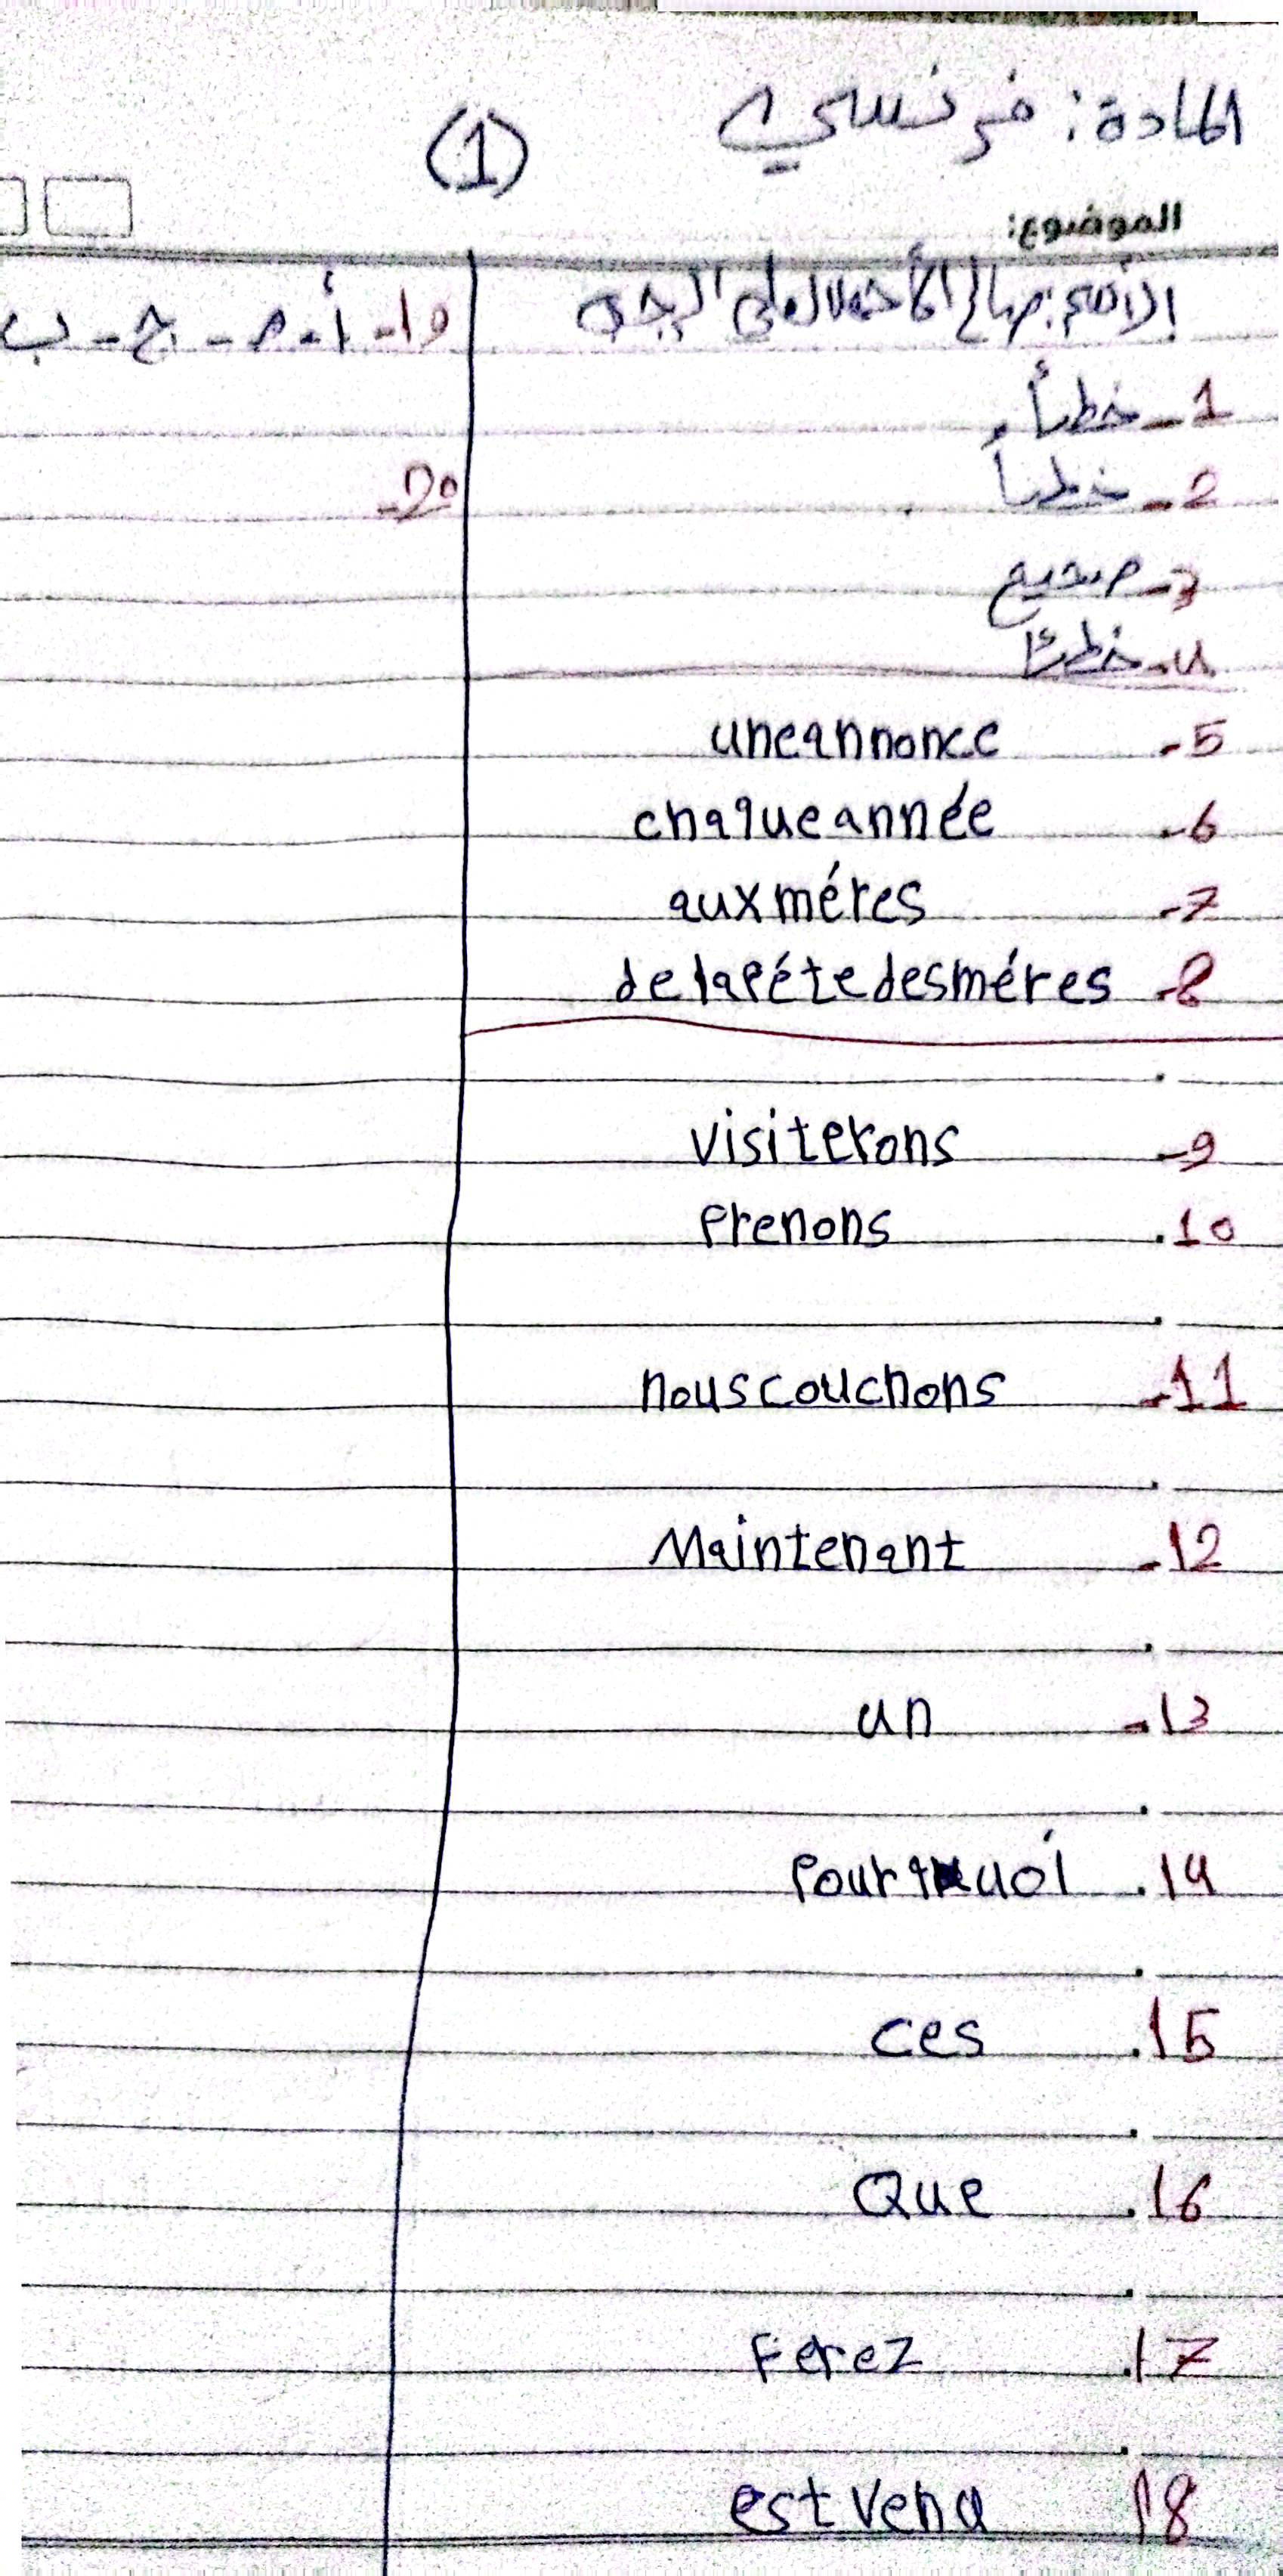 المادة: فرنسي
(1)
الموضوع:
1- خطأ
2- خطأ
3- صحيح
4- خطأ
5- une annonce
6- chaque année
7- aux méres
8- de la féte des méres
9- visiterons
10. Prenons
11- nous couchons
12- Maintenant
13- un
14. Pourquoi
15. ces
16. Que
17. Ferez
18 est venu
19- أ - م - ج - ب
20-